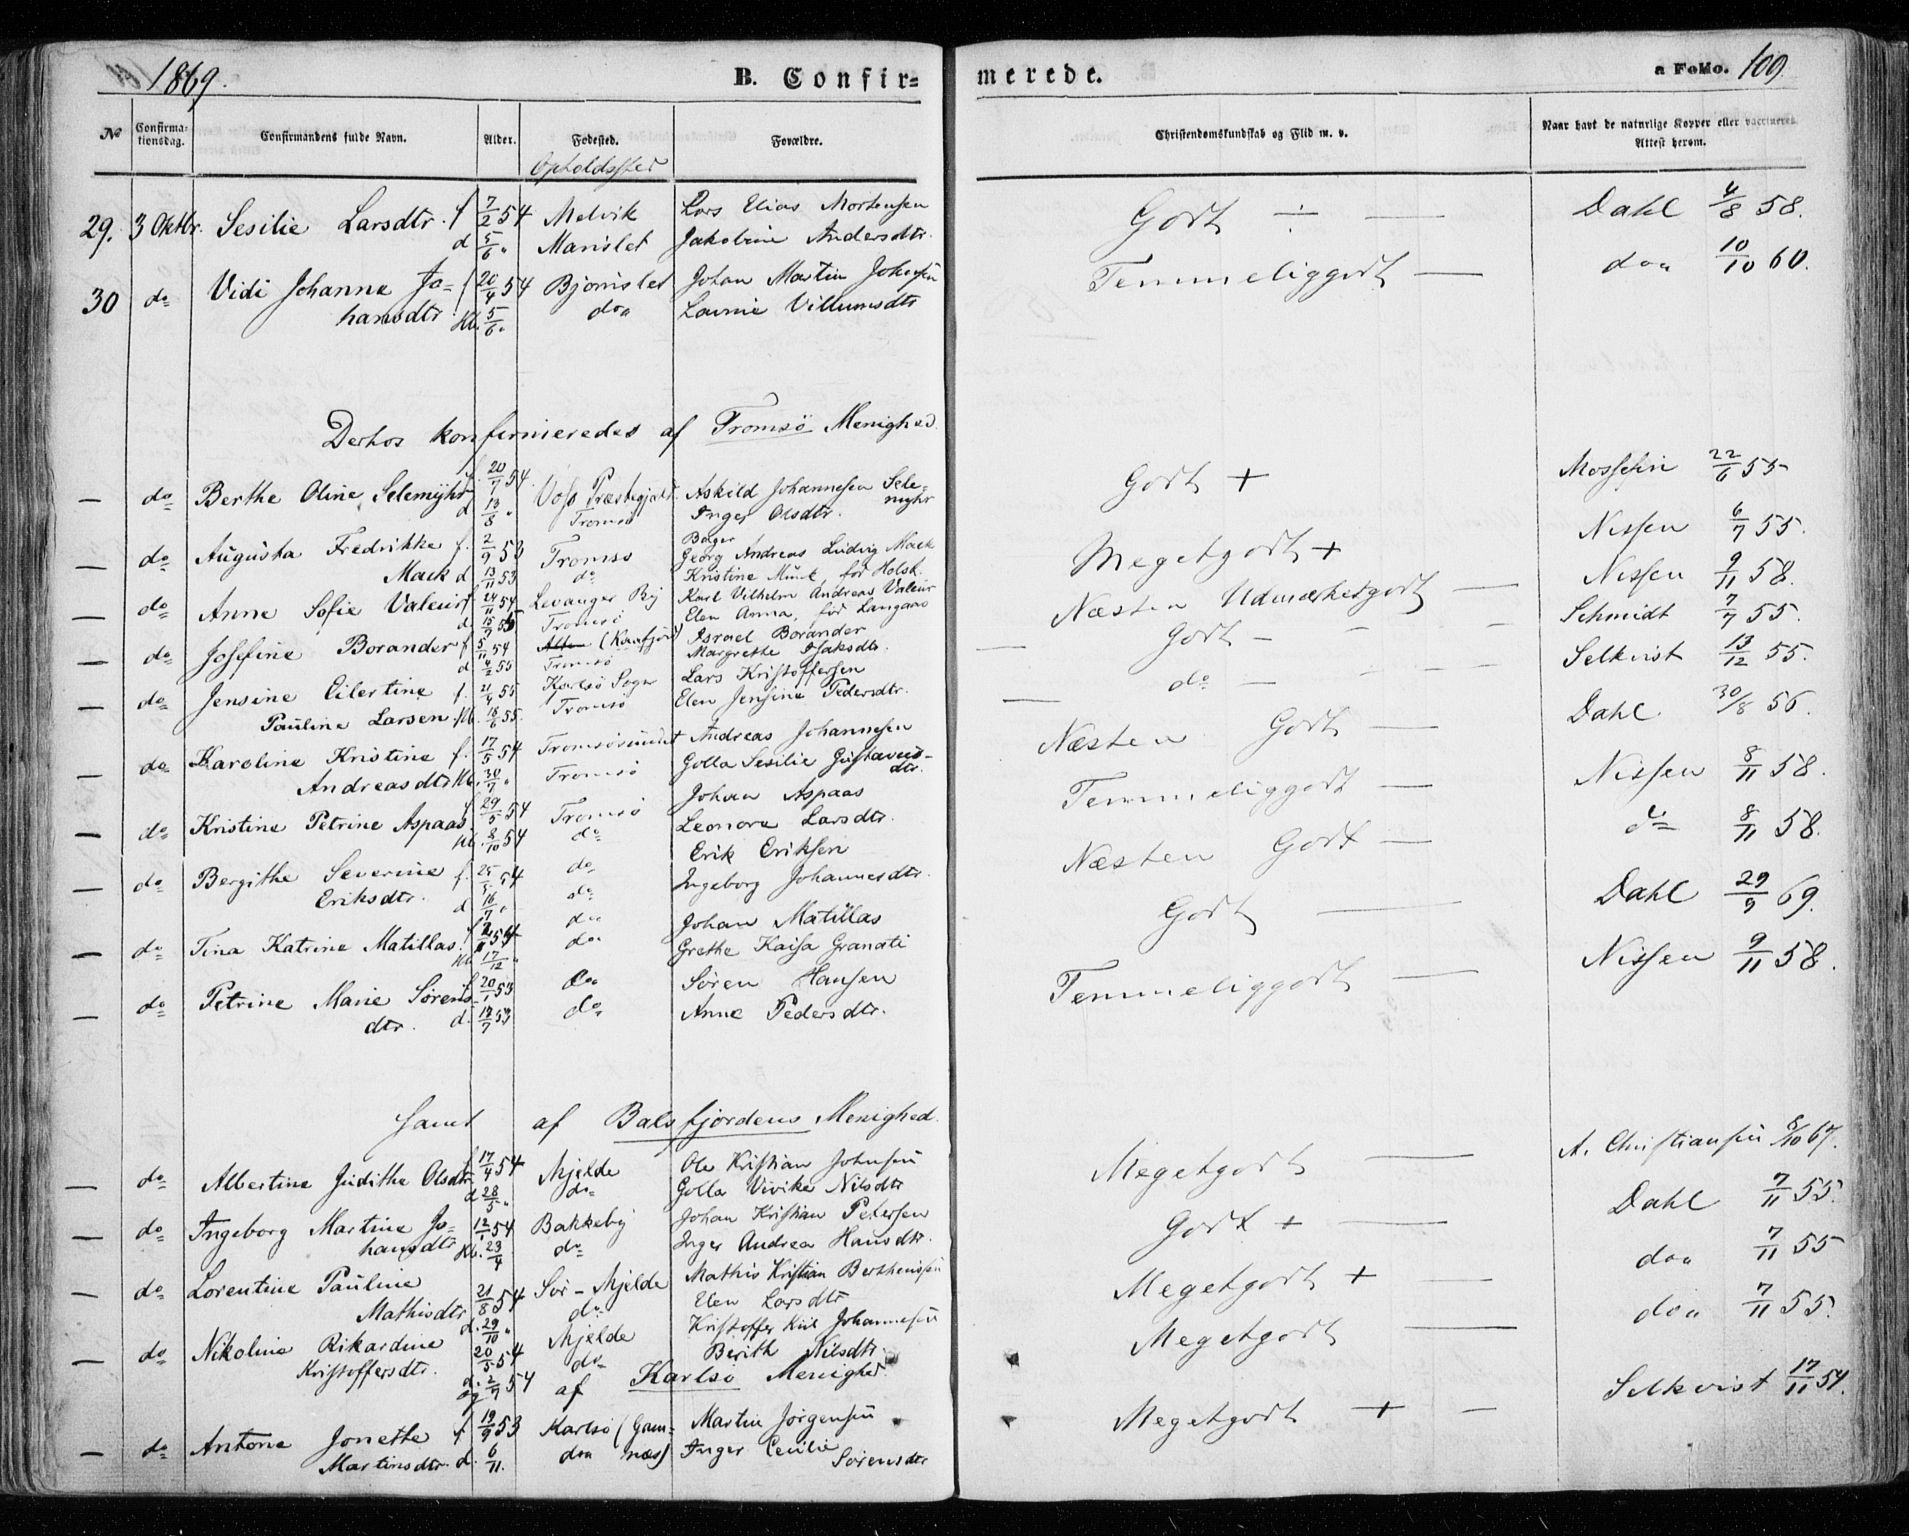 1869. B. Confir=
merede. a Folio. 109
No Confirma-tionsdag. Confirmandens fulde Navn. Alder. Fødested. Forældre. Christendomskundskab og Flid m. v. Naar havt de naturlige Kopper eller vaccineret. Attest herom.
Opholdssted
29. 3 Oktbr. Sesilie Larsdtr. f 7/2 54 Melvik Lars Elias Mortensen Godt ÷ — Dahl 4/8 58.
d 5/6 „ Marislet Jakobine Andersdtr.
30 do Vidi Johanne Jo- f 20/4 54 Bjornslet Johan Martin Johnsen Temmeliggodt — do„ 10/10 60.
hansdtr. Hb. 5/6 „ do„ Lovinie Villumsdtr
Derhos konfirmeredes af Tromsö Menighed.
— do Berthe Oline Selemyhr f. 20/7 54. Voss Præstegjæld. Askild Johannesen Sele- Godt + Mossesin 22/6 55
d 13/8 „ Tromsö Inger Olsdtr. myhr
— do Augusta Fredrikke f. 2/9 53 Tromsö Bager Georg Andreas Ludvig Mack Megetgodt + Nissen 6/7 55.
Mack d 13/11 53 do Kristine Münk, for Holsk.
— do Anne Sofie Valeur f 24/11 54 Levanger By Karl Vilhelm Andreas Valeur Næsten Udmærketgodt — Nissen 9/11 58.
d. 15/7 55 Tromsö Elen Anna, föd Langaas
— do Josefine Borander f 5/11 54 (Kaafjord) Israel Borander Godt — Schmidt 7/7 55.
d 4/2 55 Tromsö Margrethe Isaksdtr.
— do Jensine Eilertine f. 21/4 55 Karlsö Sogn Lars Kristoffersen do — Selkvist 13/12 55.
Pauline Larsen. Hb. 18/6 55. Tromsö Elen Jensine Pedersdtr.
— do Karoline Kristine f. 17/5 54 Tromsösundet Andreas Johannesen Næsten Godt — Dahl 30/8 56.
Andreasdtr Hb. 30/7 „ Tromsö Golla Sesilie Gustavus-
dtr.
— do Kristine Petrine Aspaas. f 29/5 54 Tromsö Johan Aspaas Temmeliggodt — Nissen 8/11 58.
Hb. 8/10 54 do Leonora Larsdtr.
— do Bergithe Severine f. 25/5 54 do Erik Eriksen Næsten Godt — do 8/11 58.
Eriksdtr. d 16/7 „ do Ingeborg Johannesdtr.
— do Tina Katrine Matillas. do„ Johan Matillas Godt — Dahl 29/9 69.
Hb. 17/12 „ do„ Grethe Kaisa Granati
— do Petrine Marie Sørens- f. 20/1 53 do„ Søren Hansen Temmeliggodt — Nissen 9/11 58.
dtr. d. 17/7 53 do„ Anne Pedersdtr.
Samt af Balsfjordens Menighed.
— do Albertine Judithe Olsdtr. f 17/4 54 Mjelde Ole Kristian Johnsen Megetgodt — A. Christiansen 8/10 67.
d 28/5 „ do Golla Vivike Nilsdtr
— do Ingeborg Martine Jo- 12/1 54 Bakkeby Johan Kristian Petersen Godt + — Dahl 7/11 55.
hansdtr Hb. 23/4 do Inger Andrea Hansdtr.
— do Lorentine Pauline 21/8 54 Sör-Mjelde Mathis Kristian Berthensen Megetgodt + — do„ 7/11 55
Mathisdtr d. 29/10 „ do Elen Larsdtr
— do Nikoline Rikardine 20/5 54 Mjelde Kristoffer Johannesen Megetgodt — do„ 7/11 55.
Kristoffersdtr. d. 2/7 54 do Berith Nilsdtr.
og af Karlsö Menighed
— do Antone Jonette f 19/9 53 Karlsö (Gam- Martin Jörgensen Megetgodt + — Selkvist 17/11 54.
Martinsdtr. d. 6/11. do„ næs) Inger Cecilie
Sörensdtr